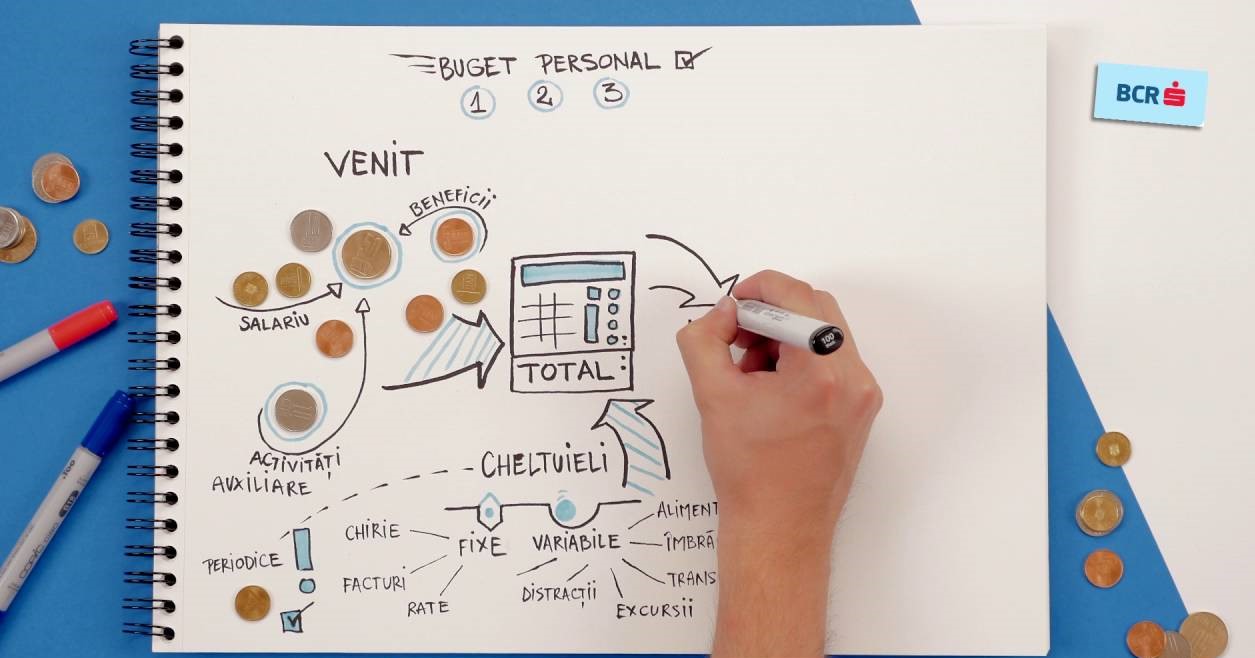 BUGET PERSONAL
1 2 3
BCR
VENIT
BENEFICII
SALARIU
TOTAL:
ACTIVITĂȚI
AUXILIARE
CHELTUIELI
ALIMENT
CHIRIE
FIXE
VARIABILE
ÎMBRĂ
PERIODICE
FACTURI
TRANS
DISTRACȚII
RATE
EXCURSII
100